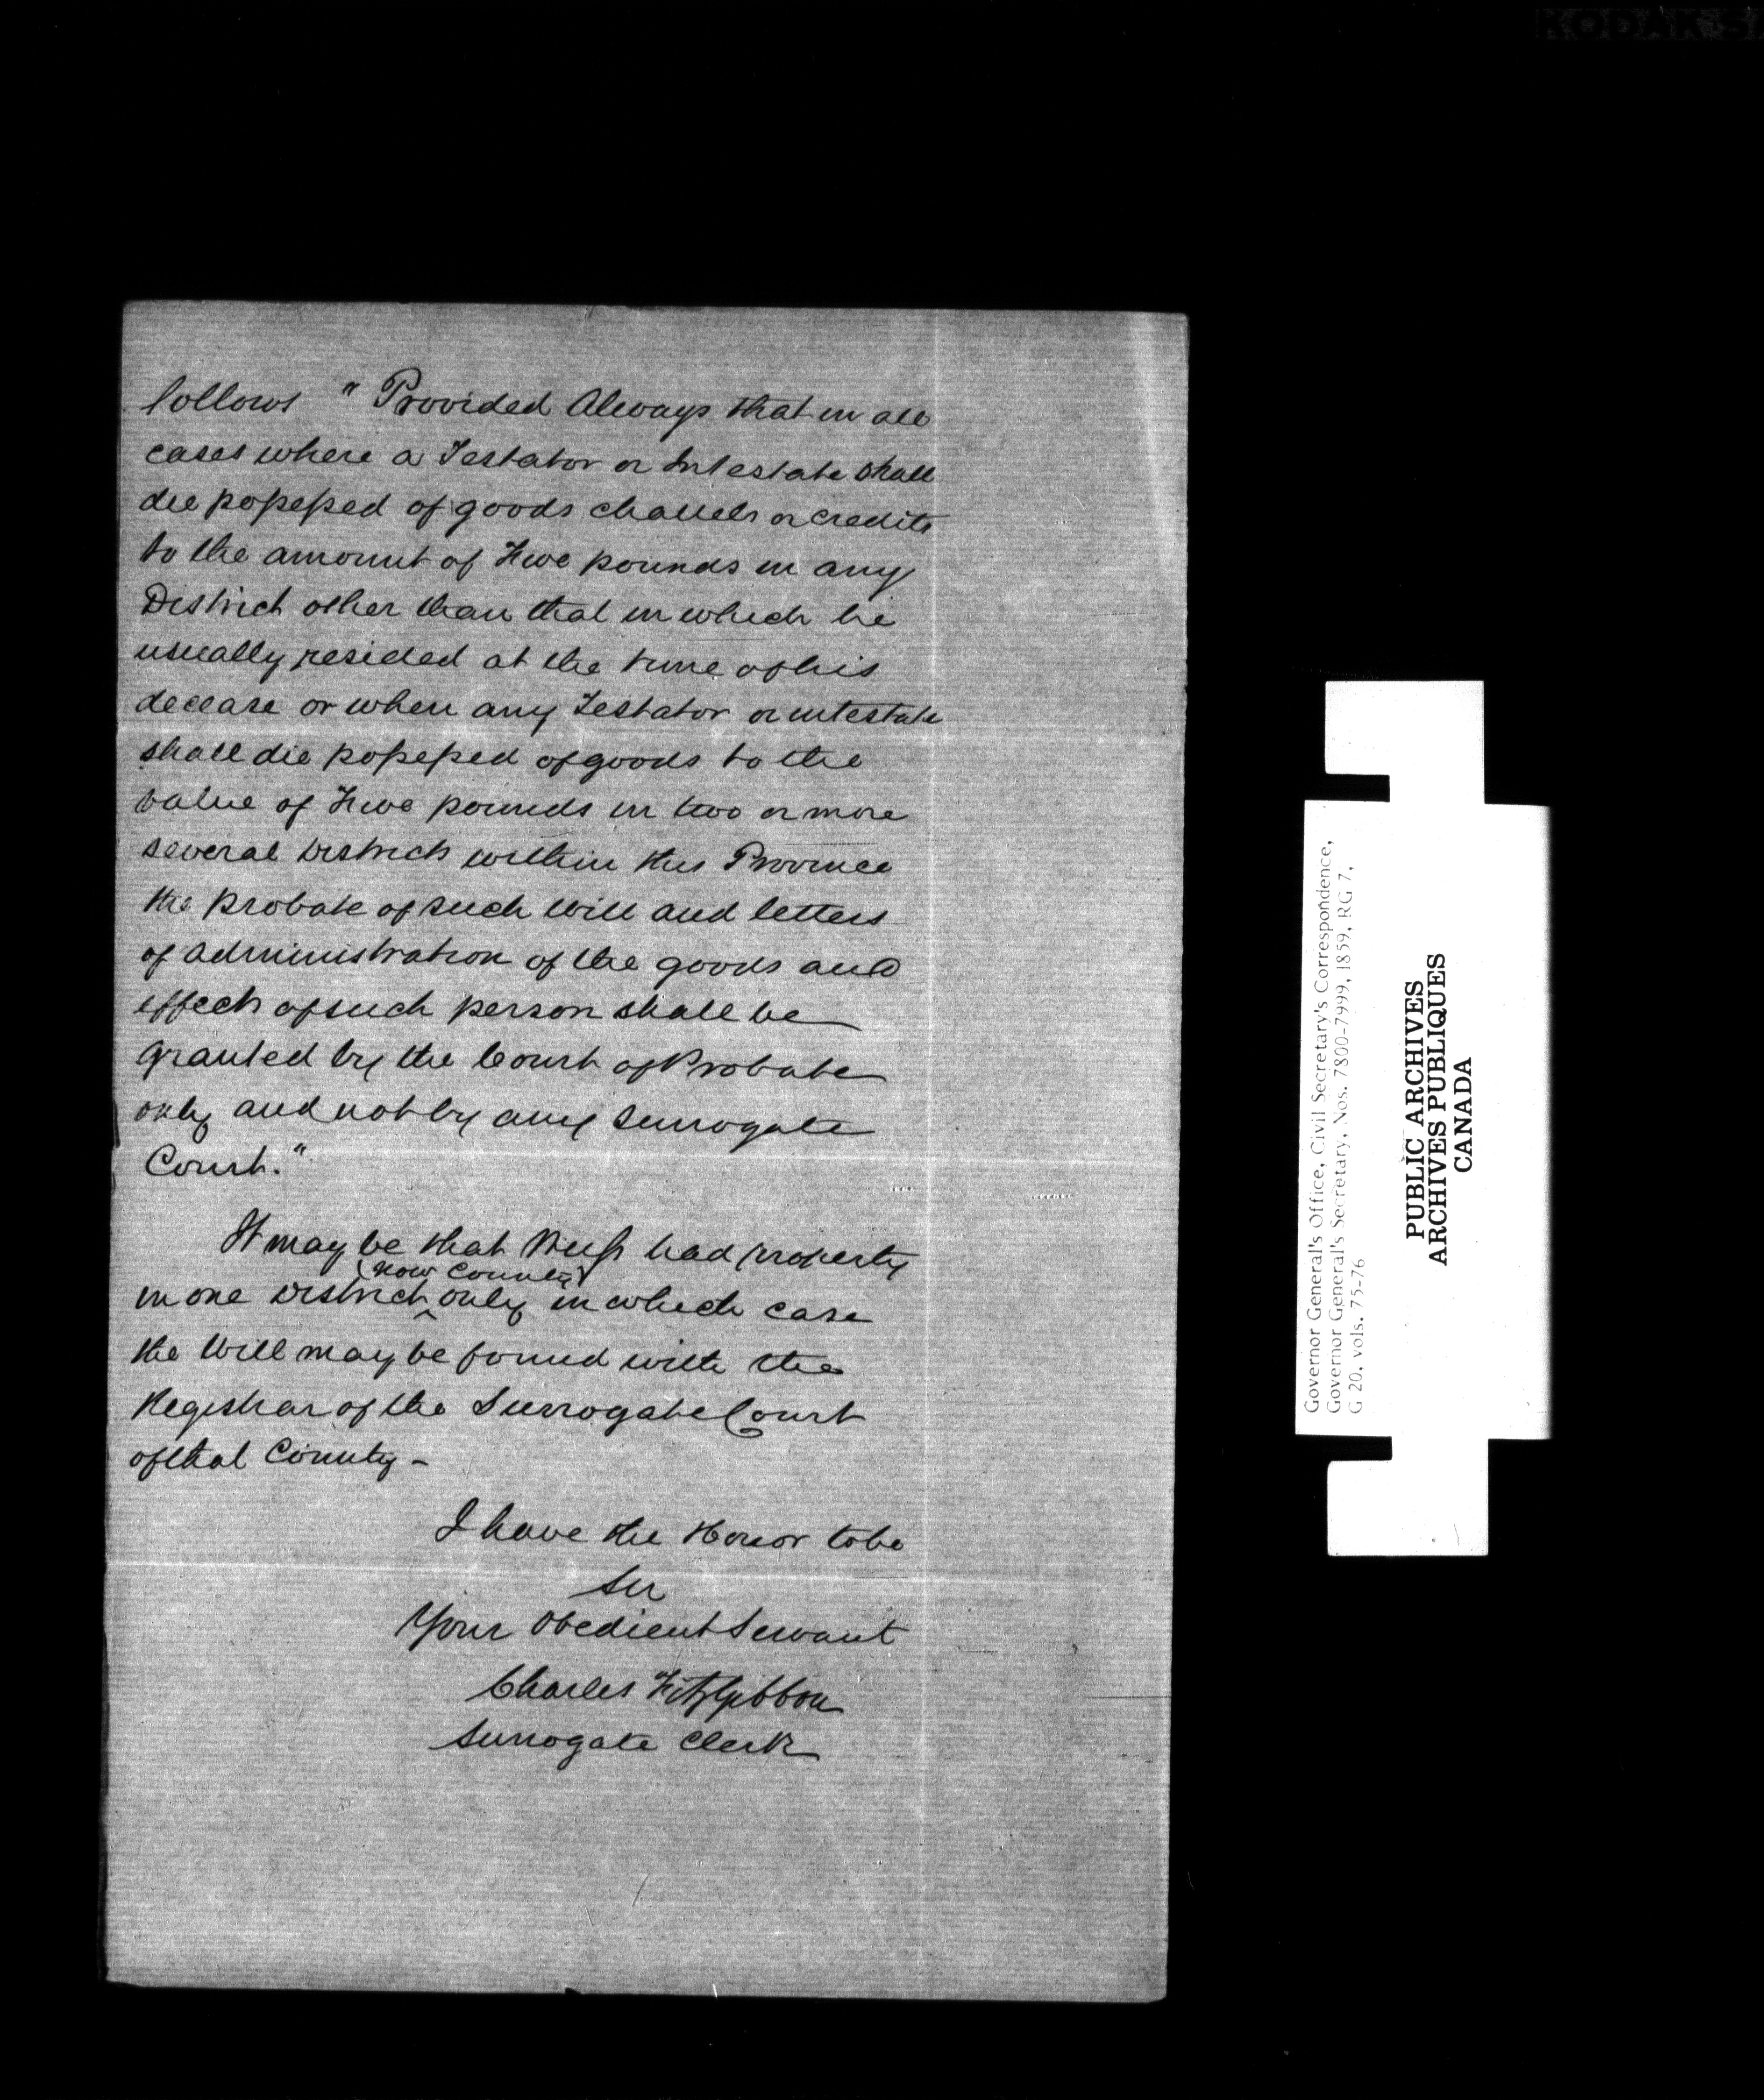 follows " Provided Always that in all
cases where a Testator or Intestate shall
die possessed of goods chattels or credits
to the amount of Five pounds in any
District other than that in which he
usually resided at the time of his
decease or when any Testator or intestate
shall die possessed of goods to the
value of Five pounds in two or more
several Districts within this Province
the probate of such Will and letters
of administration of the goods and
effects of such person shall be
granted by the Court of Probate
only and not by any Surrogate
Court."
It may be that had property
(now County)
in one District only in which case
the Will may be found with the
Registrar of the Surrogate Court
of that County -
I have the Honor to be
Sir
Your Obedient Servant
Charles FitzGibbon
Surrogate Clerk
Governor General's Office, Civil Secretary's Correspondence,
Governor General's Secretary, Nos. 7800-7999, 1859, RG 7,
G 20, vols. 75-76
PUBLIC ARCHIVES
ARCHIVES PUBLIQUES
CANADA